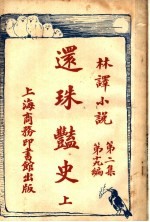 林譯小說
第二集
第九編
還珠豔史 上
上海商務印書館出版